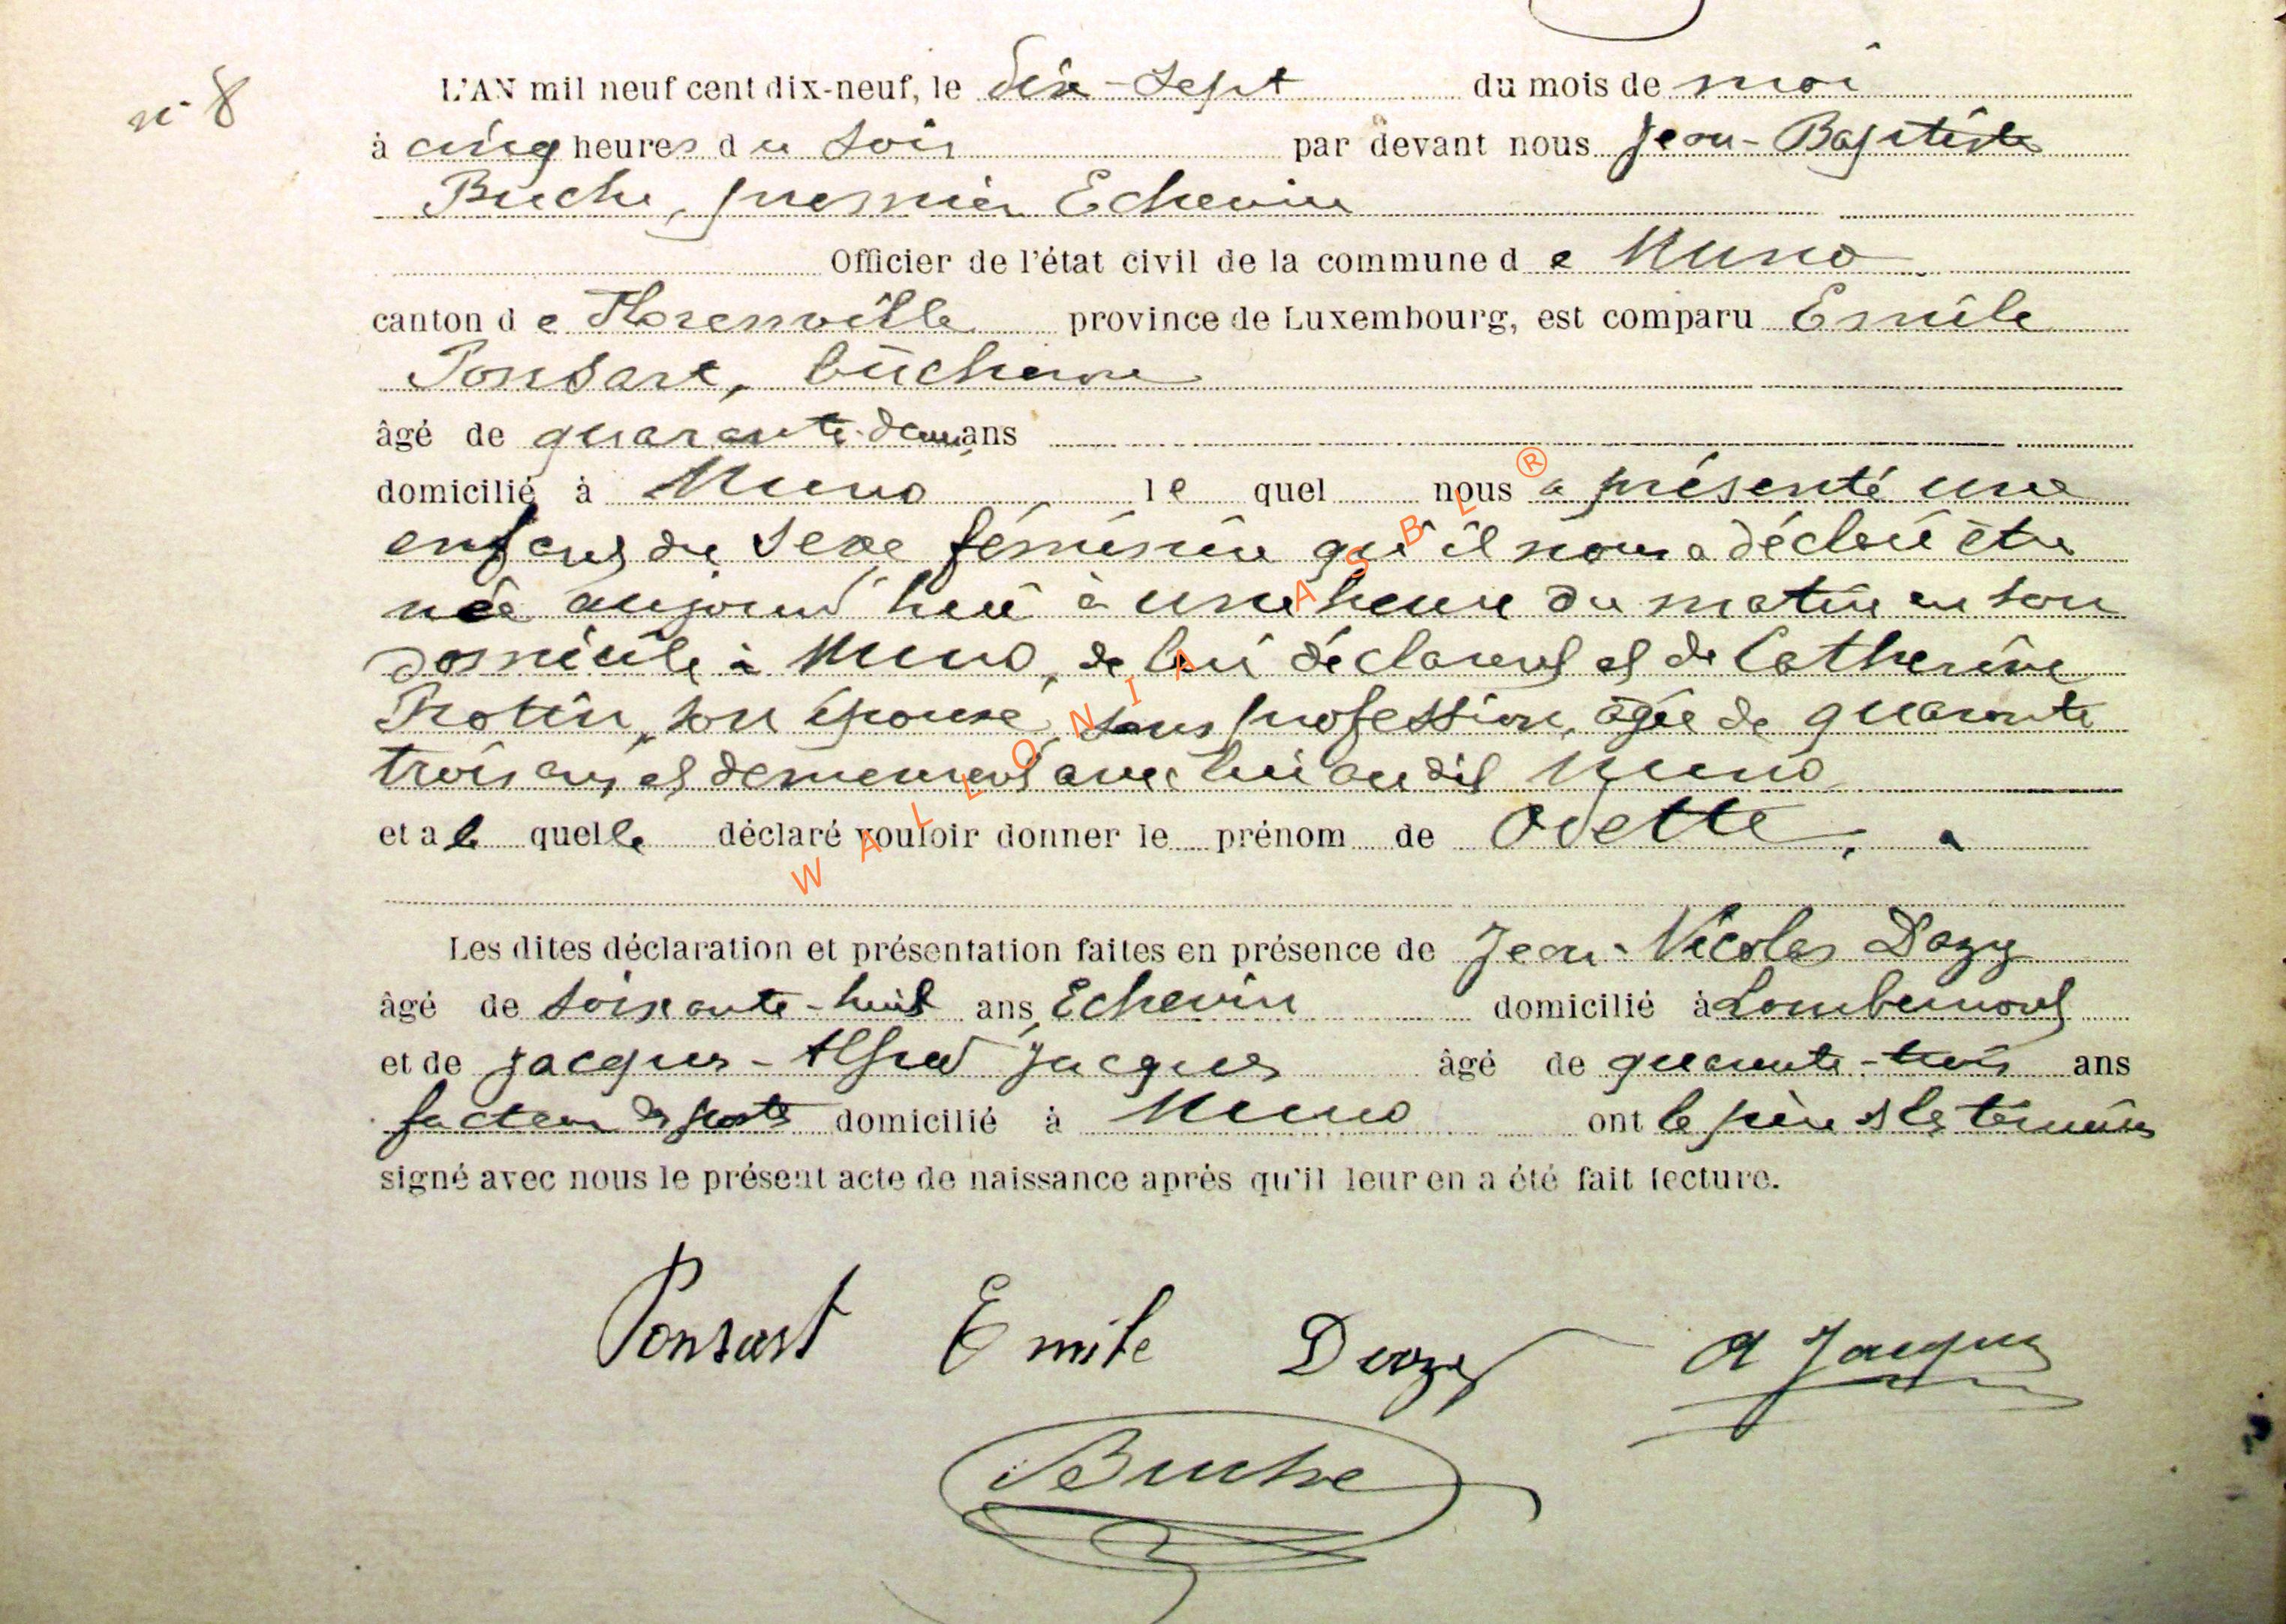 n° 8
L'AN mil neuf cent dix-neuf, le dix-sept du mois de mai
à cinq heures du soir par devant nous Jean-Baptiste
Buche, premier Echevin
Officier de l'état civil de la commune de Muno
canton de Florenville province de Luxembourg, est comparu Emile
Ponsart, bûcheron
âgé de quarante-deux ans
domicilié à Muno, le quel nous a présenté une
enfant du sexe féminin qu'il nous a déclaré être
née aujourd'hui à une heure du matin en son
domicile à Muno, de lui déclarant et de Catherine
Protin, son épouse, sans profession, âgée de quarante
trois ans, et demeurant avec lui au dit Muno
et a la quelle déclaré vouloir donner le prénom de Odette.
Les dites déclaration et présentation faites en présence de Jean-Nicolas Dazy
âgé de soixante-huit ans, Echevin domicilié à Lambermont
et de Jacques-Alfred Jacques âgé de quarante-trois ans
facteur des postes domicilié à Muno ont le père et les témoins
signé avec nous le présent acte de naissance après qu'il leur en a été fait lecture.
Ponsart Emile Dazy A Jacques
Buche
WALLONIA ASBL ®